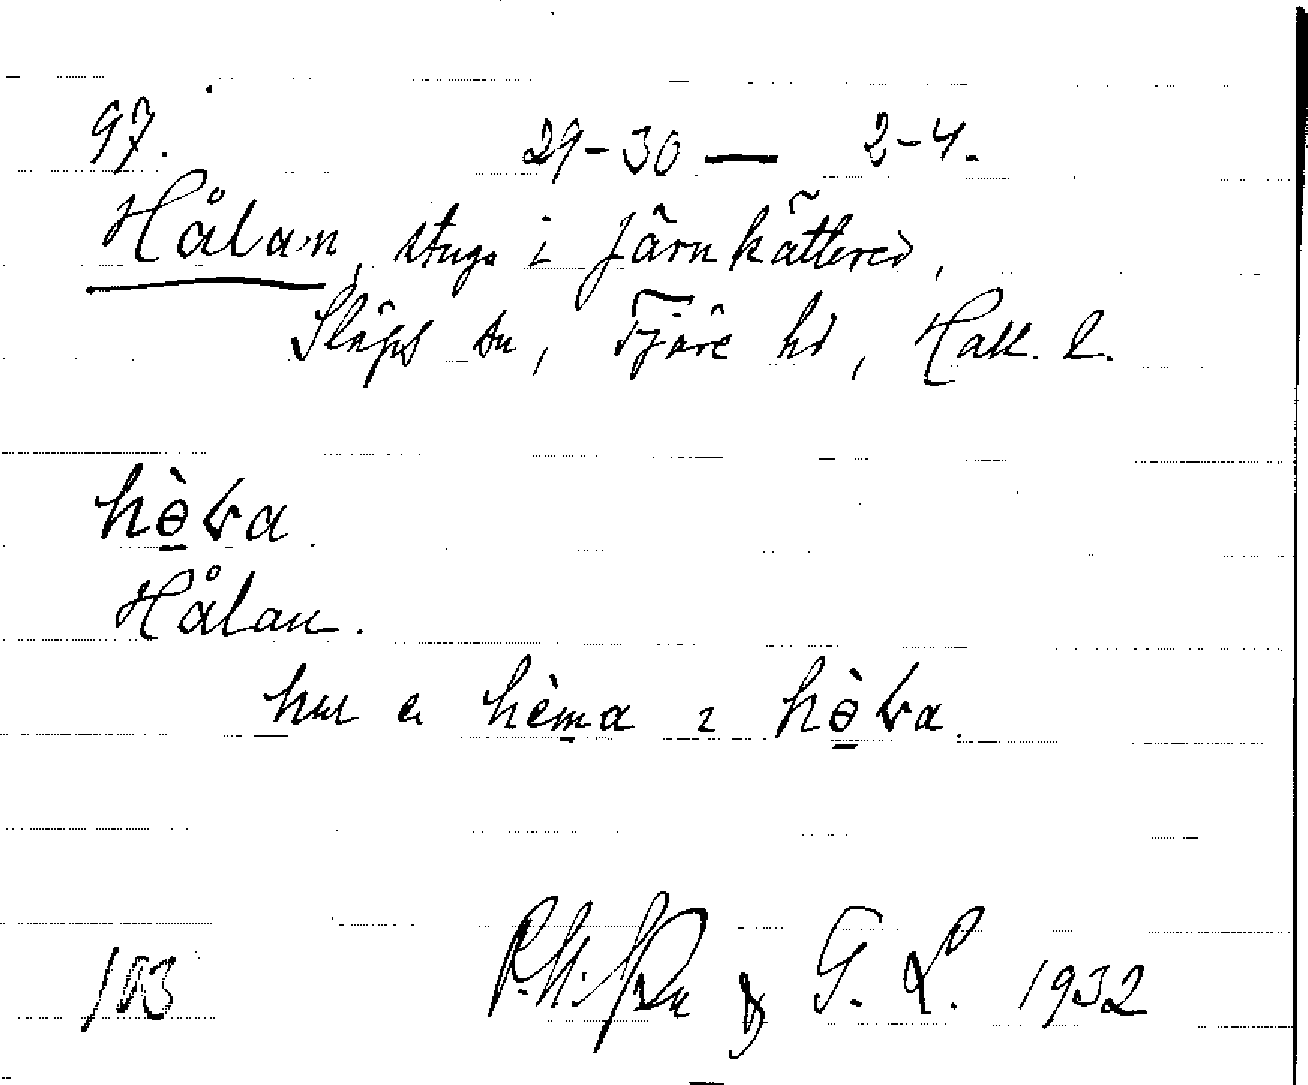 97. 29-30 — 2-4.
Hålan, stuga i Järnkättered,
Släps sn, Fjäre hd, Hall. l.
hɵ̀ɽa.
Hålan.
hur e hèma i hɵ̀ɽa.
103 G. L. 1932